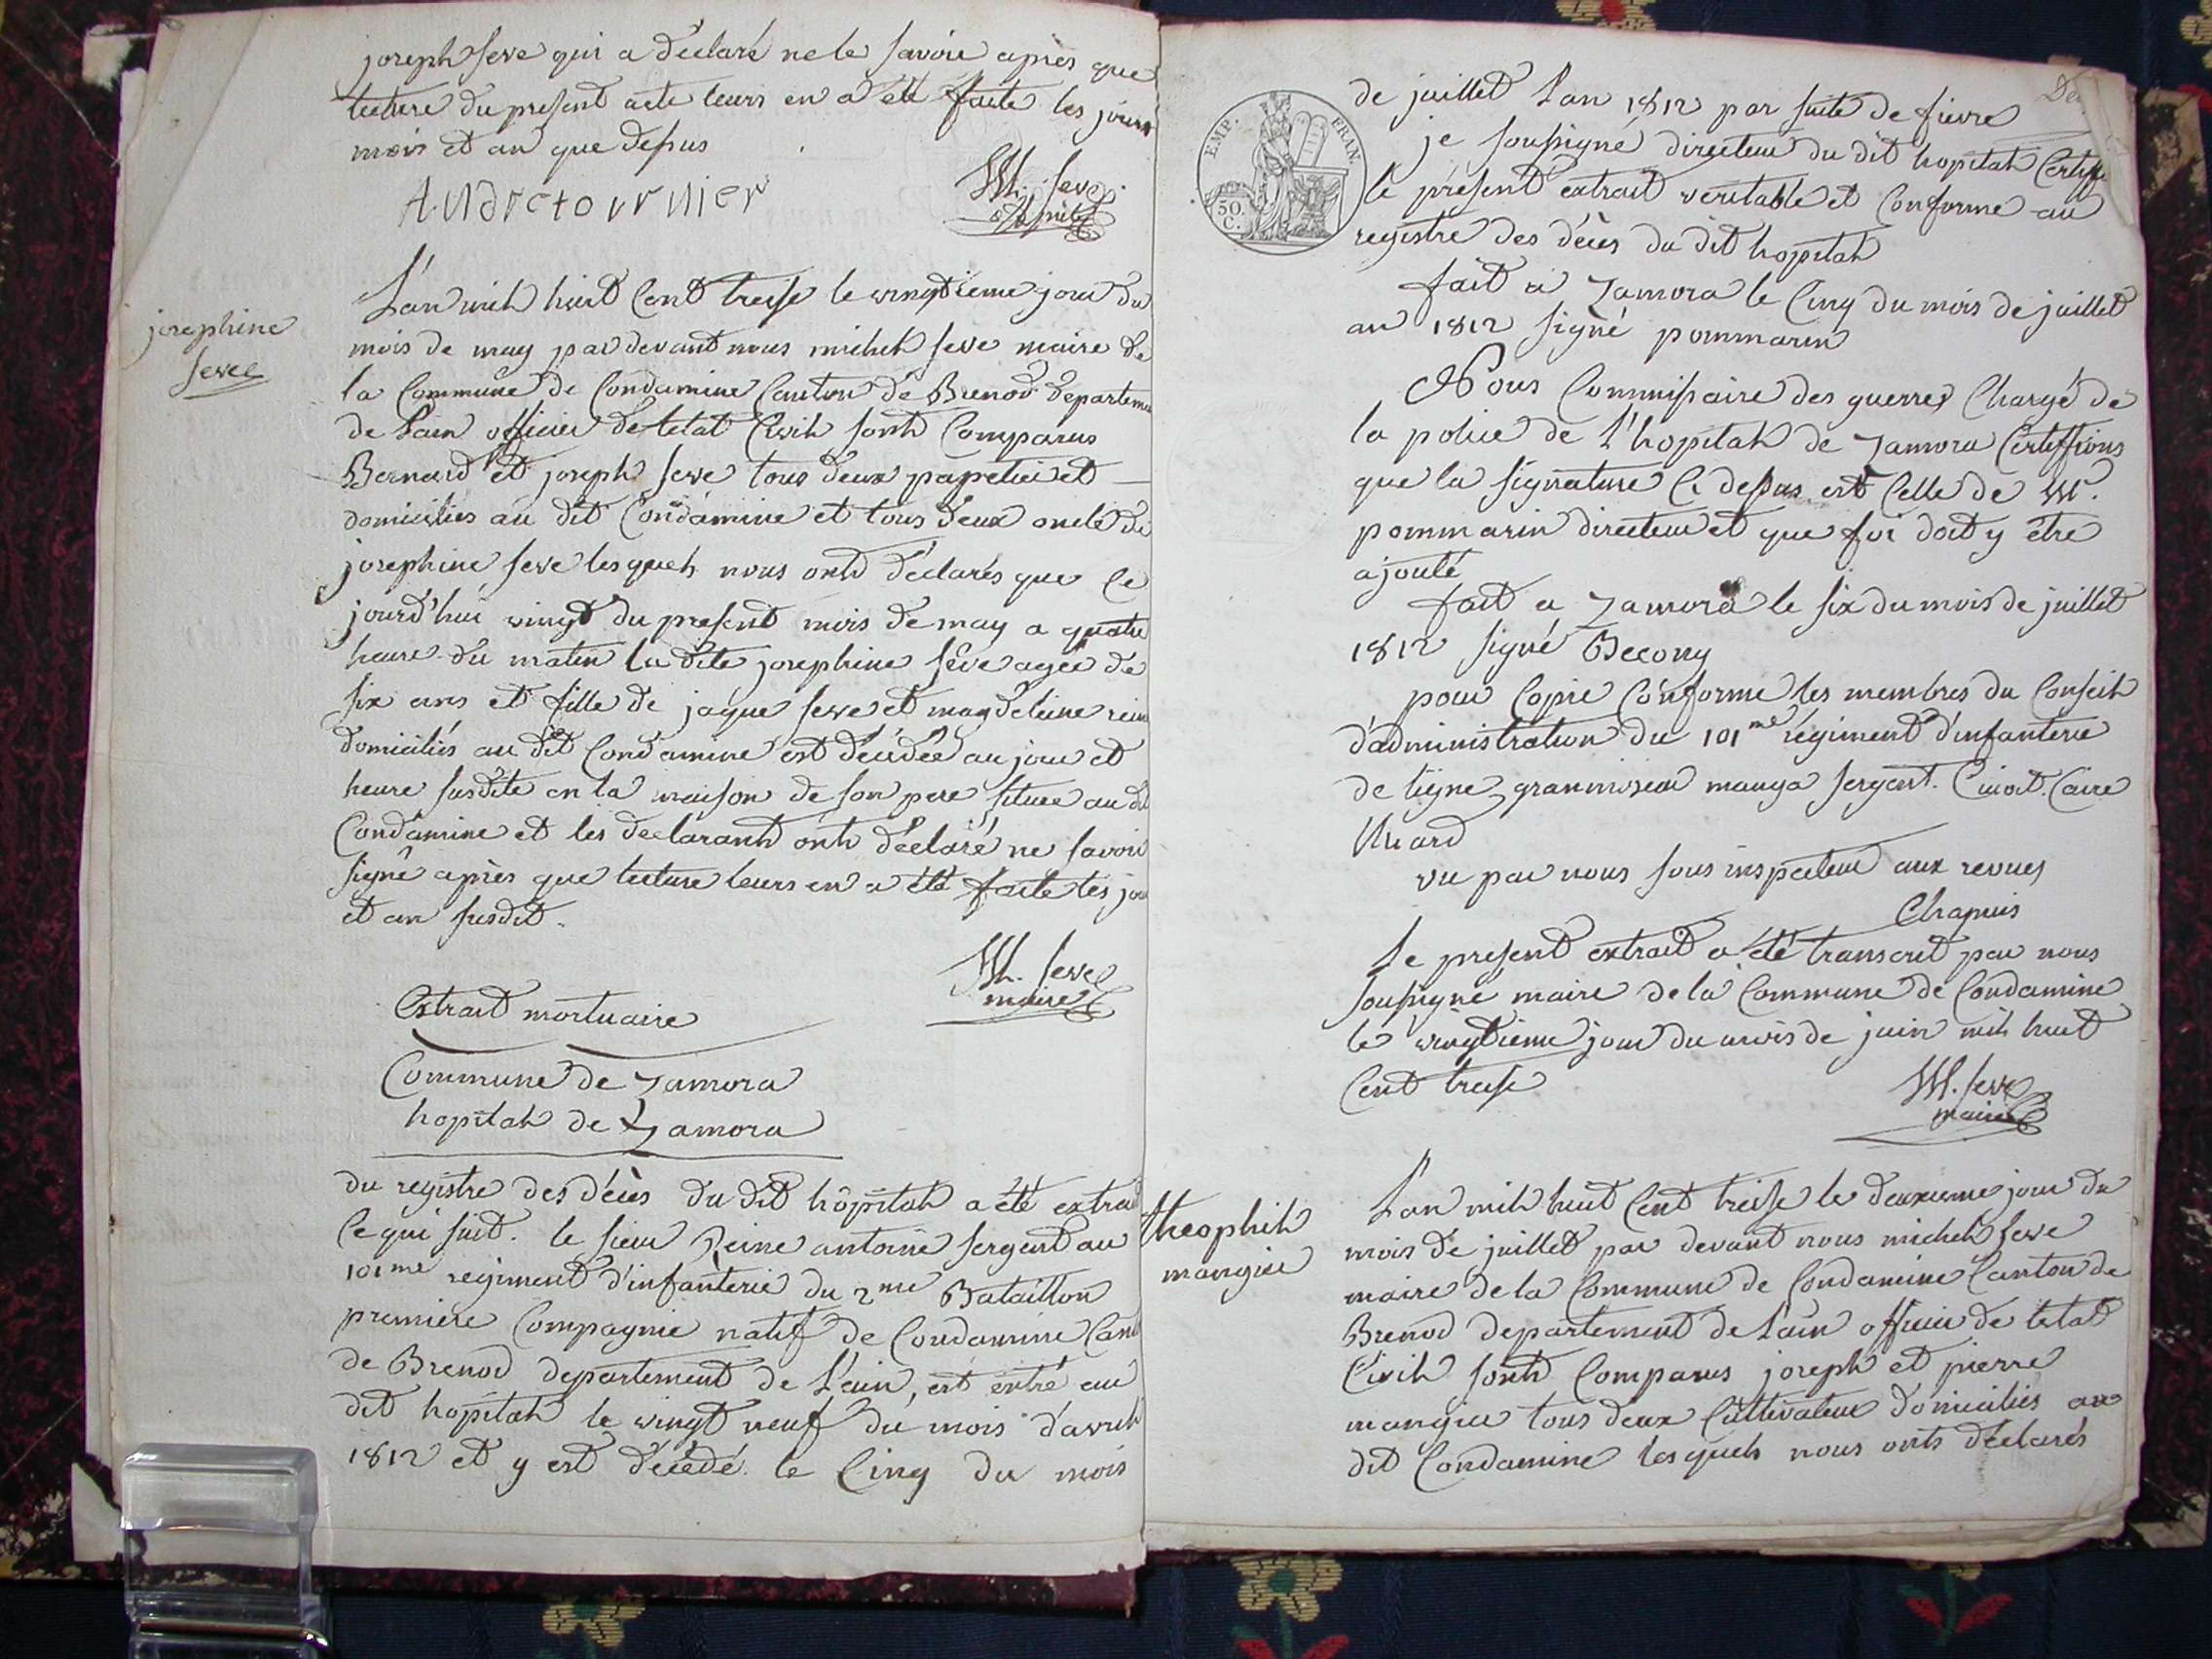 joseph seve qui a déclaré ne le savoir après que
lecture du present acte leurs en a été faite les jours
mois et an que dessus
Andre tournier
M. seve
josephine
seve
L'an mil huit Cent treise le vingtieme jour du
mois de may par devant nous michel seve maire de
la Commune de Condamine Canton de Brenod departeme
de L'ain officier de letat Civil sont Comparus
Bernard et joseph seve tous deux papetier et
domiciliés au dit Condamine et tous deux oncle de
josephine seve lesquels nous ont déclarés que ce
jourd'hui vingt du present mois de may a quatre
heure du matin la dite josephine séve agée de
six ans et fille de jaque seve et magdeleine rein
domiciliés au dit Condamine est décédée au jour et
heure susdite en la maison de son pere située au dit
Condamine et les declarant ont déclaré ne savoir
signé après que lecture leurs en a été faite les jou
et an susdit.
M. seve
maire
Extrait mortuaire
Commune de Zamora
hopital de Zamora
du registre des décès du dit hôpital a été extrai
Ce qui suit. le sieur Reine antoine sergent au
101me regiment d'infanterie du 2me Bataillon
premiere Compagnie natif de Condamine Cant
de Brenod departement de L'ain, est entré au
dit hopital le vingt neuf du mois d'avril
1812 et y est décédé le Cinq du mois
EMP. FRAN.
50.
C.
de juillet L'an 1812 par suite de fievre
je soussigné directeur du dit hopital Certifie
le présent extrait veritable et Conforme au
registre des décès du dit hopital
fait a Zamora le Cinq du mois de juillet
an 1812 signé pommarin
Nous Commissaire des guerres Chargé de
la police de L'hopital de Zamora Certiffions
que la signature Ci dessus est Celle de Mr.
pommarin directeur et que foi doit y être
ajouté
fait a Zamora le six du mois de juillet
1812 signé Becony
pour Copie Conforme les membres du Conseil
d'administration du 101me régiment d'infanterie
de ligne manga sergent. Caire
vu par nous sous inspecteur aux revues
Chapuis
Le present extrait a été transcrit par nous
soussigné maire de la Commune de Condamine
le vingtieme jour du mois de juin mil huit
Cent treise
M. seve
maire
theophil
mangier
L'an mil huit Cent treise le deuxieme jour du
mois de juillet par devant nous michel seve
maire de la Commune de Condamine Canton de
Brenod departement de L'ain officier de letat
Civil sont Comparus joseph et pierre
mangier tous deux Cultivateur domiciliés au
dit Condamine lesquels nous ont déclarés